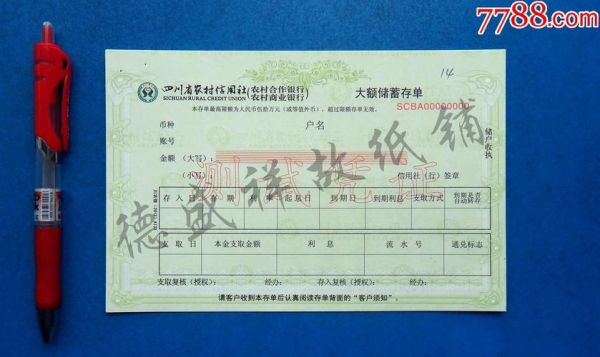 7788.com
14
四川省农村信用社(农村合作银行)(农村商业银行) 大额储蓄存单
SICHUAN RURAL CREDIT UNION
SCBA00000000
本存单最高限额为人民币伍拾万元(或等值外币),超过限额存单无效。
币种 户名
账号
金额(大写):
(小写): 信用社(行)签章
测试凭证
储户收执
存入日 存期 利率 起息日 到期日 到期利息 支取方式 到期是否自动转存
支取日 本金支取金额 利息 流水号 通兑标志
支取复核(授权): 经办: 存入复核(授权): 经办:
请客户收到本存单后认真阅读存单背面的“客户须知”。
德盛祥故纸铺